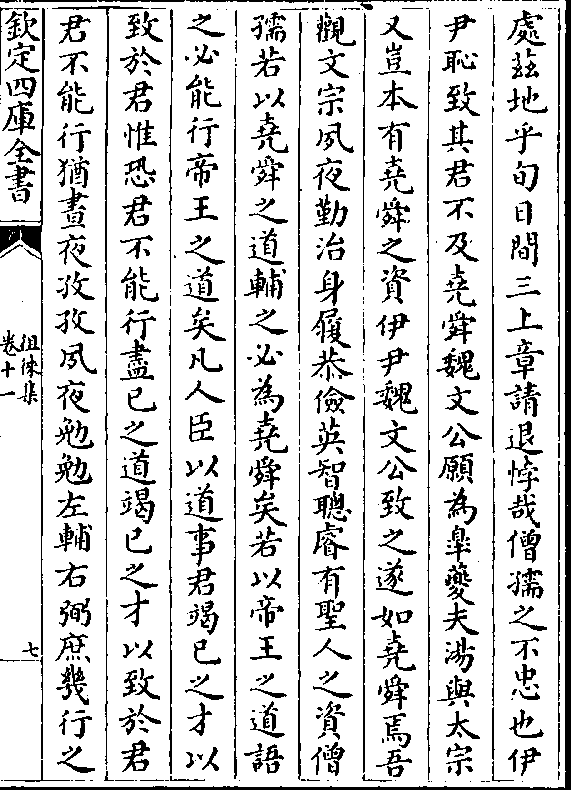 處茲地乎旬日間三上章請退悖哉僧孺之不忠也伊
尹恥致其君不及堯舜魏文公願為臯夔夫湯與太宗
又豈本有堯舜之資伊尹魏文公致之遂如堯舜焉吾
觀文宗夙夜勤治身履恭儉英智聰睿有聖人之資僧
孺若以堯舜之道輔之必為堯舜矣若以帝王之道語
之必能行帝王之道矣凡人臣以道事君竭已之才以
致於君惟恐君不能行盡已之道竭已之才以致於君
君不能行猶晝夜孜孜夙夜勉勉左輔右弼庶幾行之
欽定四庫全書
徂徠集
卷十一
七